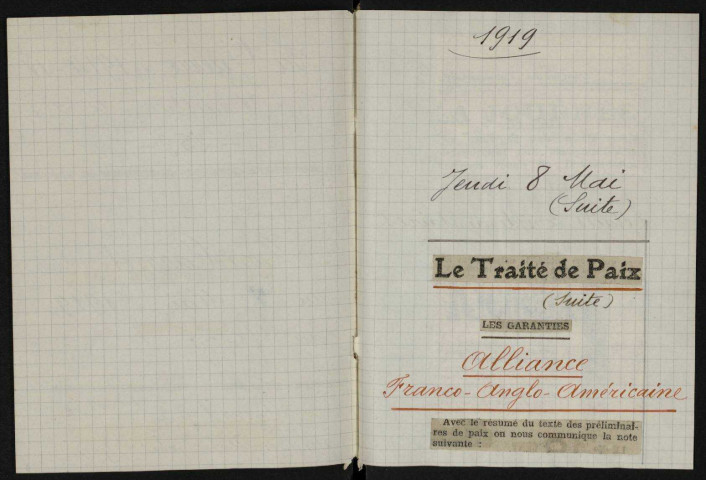 1919
Jeudi 8 Mai
(Suite)
Le Traité de Paix
(Suite)
LES GARANTIES
Alliance
Franco-Anglo-Américaine
Avec le résumé du texte des préliminai-
res de paix on nous communique la note
suivante :